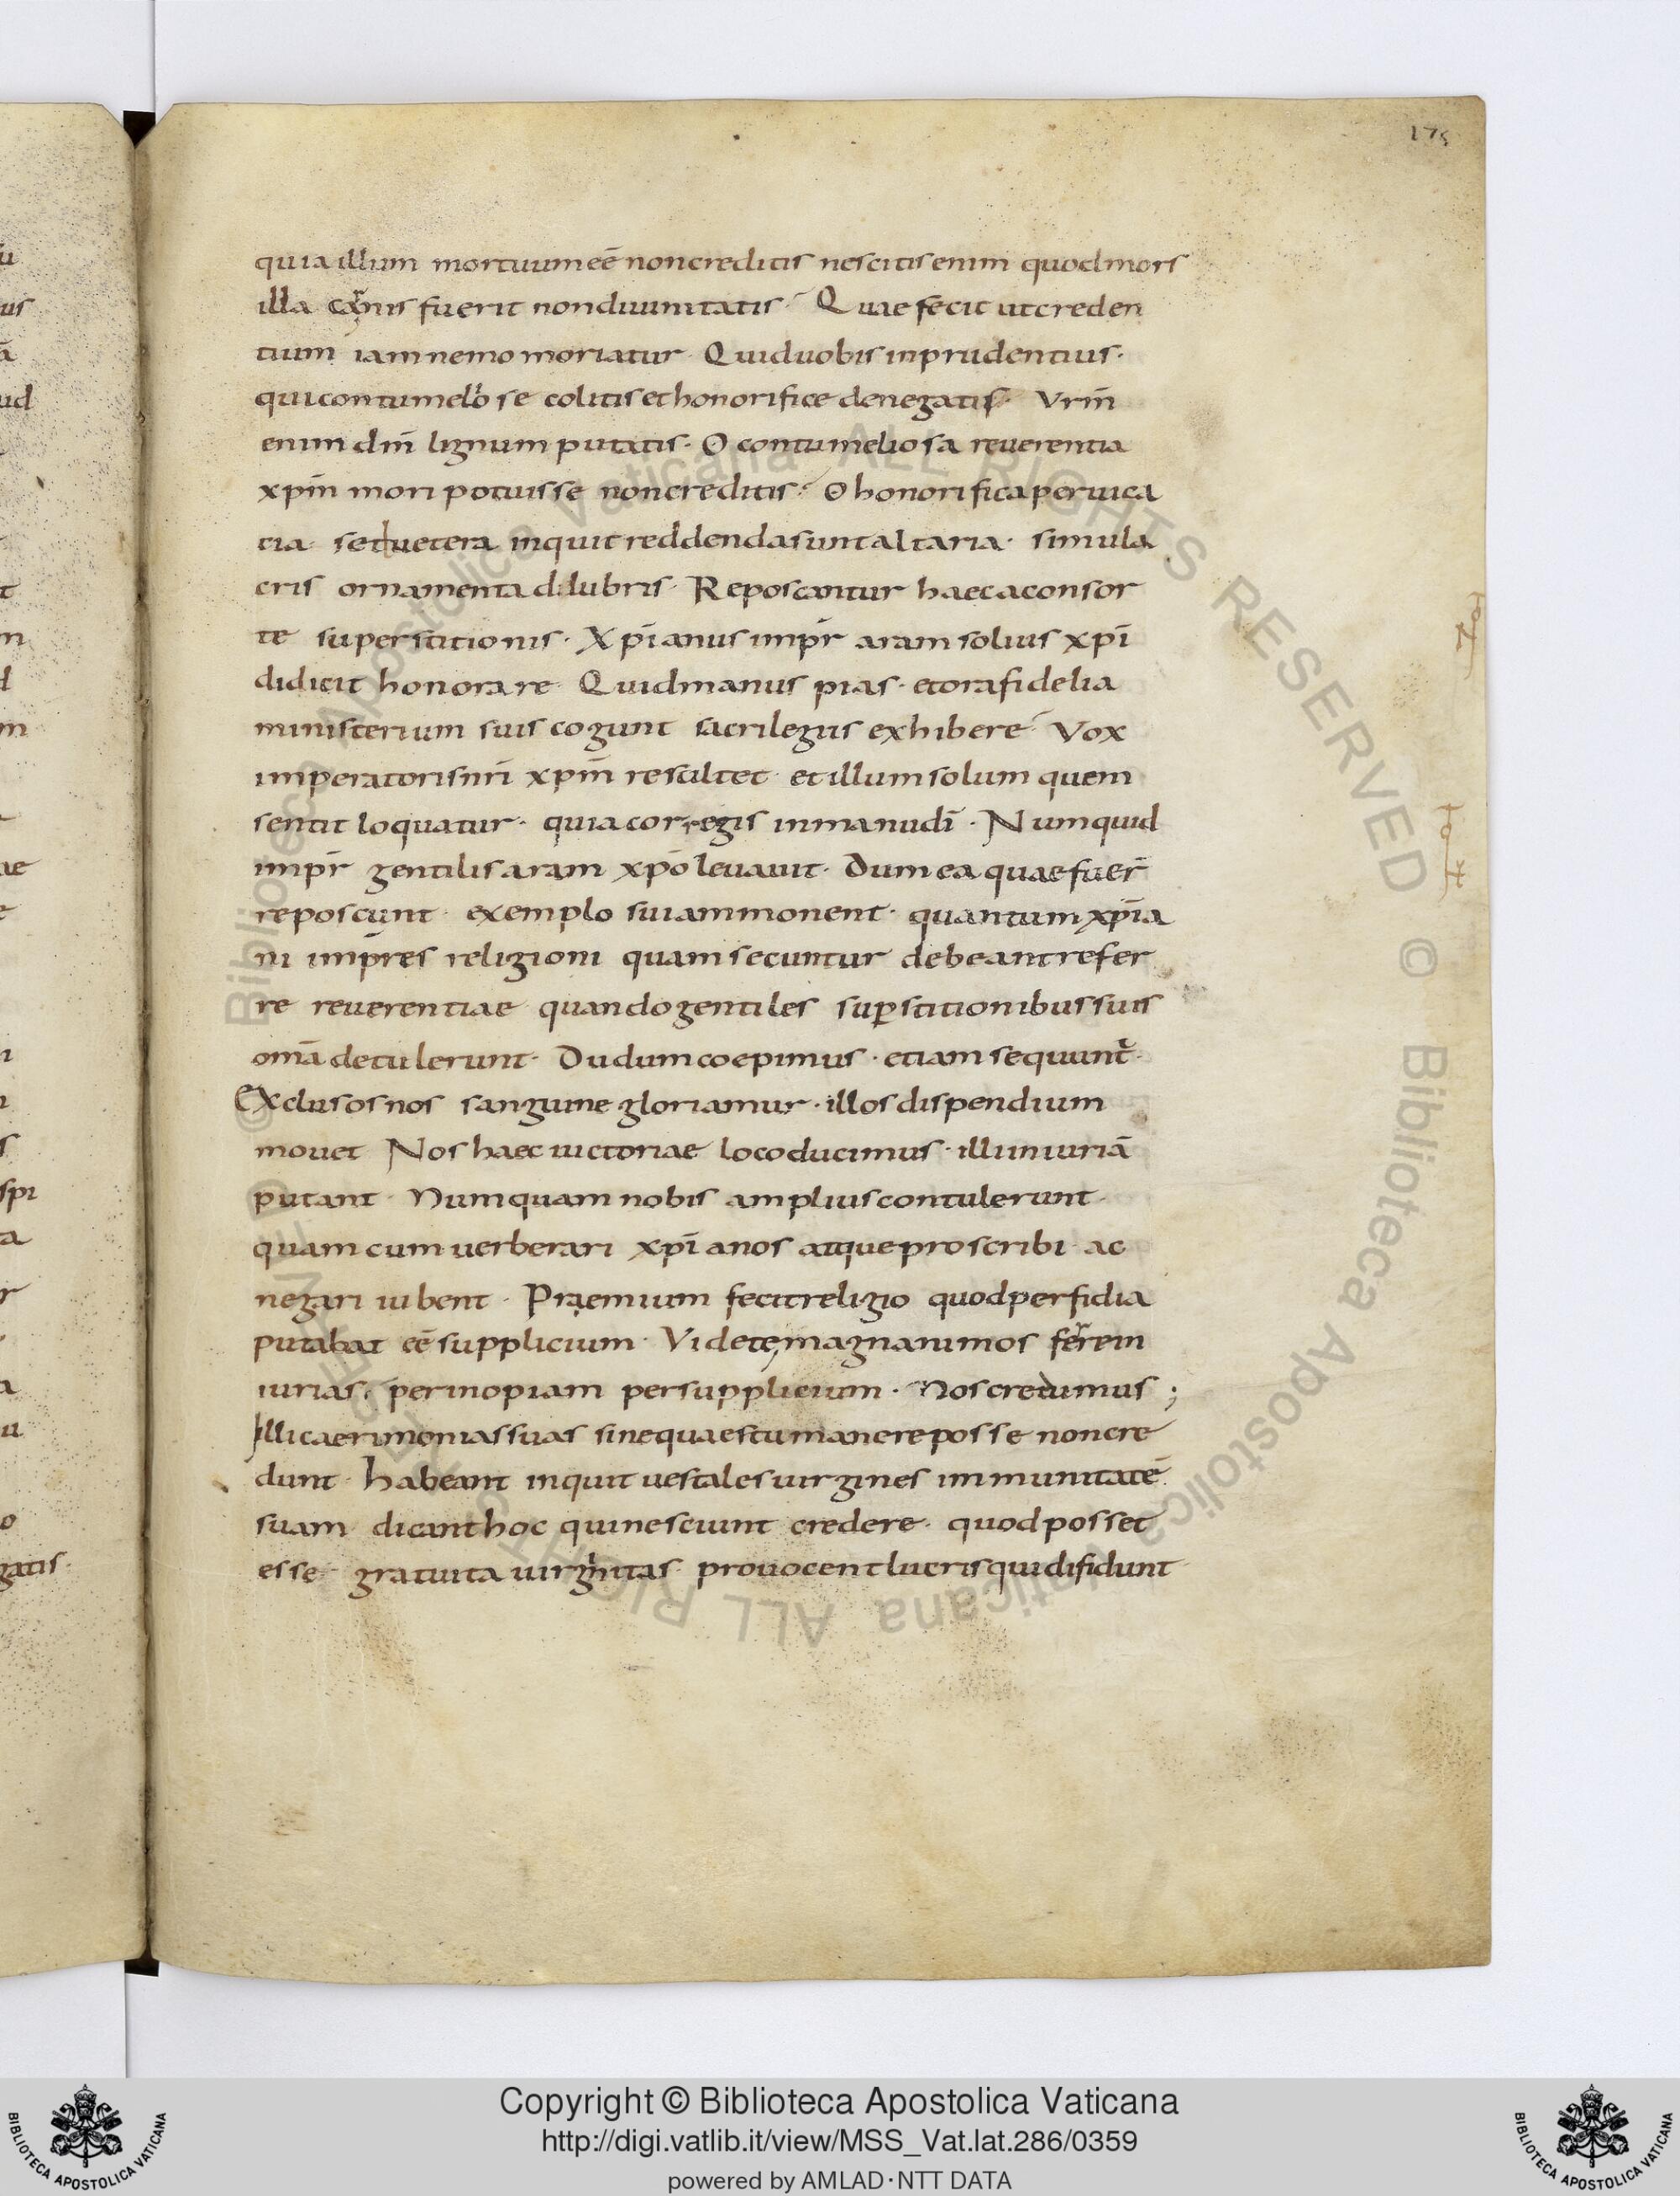 175
quia illum mortuum eē non creditis nescitis enim quod mors
illa carnis fuerit non diuinitatis Quae fecit ut creden
tium iam nemo moriatur Quid uobis inprudentius·
qui contumelio se colitis et honorifice denegatis· Vrm̄
enim dm̄ lignum putatis· O contumeliosa reuerentia
xpm̄ mori potuisse non creditis· O honorifica peruica
cia sed uetera inquit reddenda sunt altaria· simula
cris ornamenta delubris· Reposcantur haec a consor
te superstitionis· Xpīanus impr̄ aram solius xpī
didicit honorare Quid manus pias· et ora fidelia
ministerium suis cogunt sacrilegiis exhibere Vox
imperatoris nr̄i xpm̄ resultet et illum solum quem
sentit loquatur· quia cor regis in manu dī· Numquid
impr̄ gentilis aram xpō leuauit· Dum ea quae fuer̄
reposcunt exemplo sui ammonent· quantum xpīa
ni impr̄es religioni quam secuntur debeant refer
re reuerentiae quando gentiles sup̄stitionibus suis
omā detulerunt· Dudum coepimus· etiam sequunt᷑·
Exclusos nos sanguine gloriamur· illos dispendium
mouet Nos haec uictoriae loco ducimus· illi iniuriā
putant· Numquam nobis amplius contulerunt·
quam cum uerberari xpīanos atque proscribi ac
negari iubent· Praemium fecit religio quod perfidia
putabat eē supplicium· Videte magnanimos ferre in
iurias· per inopiam per supplicium· Nos creuimus;
Illi caerimonias suas sine quaestu manere posse non cre
dunt· habeant inquit uestales uirgines immunitatē
suam dicant hoc qui nesciunt credere· quod posset
esse gratuita uirginitas prouocent lucris qui difidunt
ū
us
ā
ud
t
m
d
m
ae
e
i
s
spi
ta
r
a
u
o
gatis·
© Biblioteca Apostolica Vaticana ALL RIGHTS RESERVED © Biblioteca Apostolica Vaticana ALL RIGHTS RESERVED
BIBLIOTECA APOSTOLICA VATICANA
Copyright © Biblioteca Apostolica Vaticana
http://digi.vatlib.it/view/MSS_Vat.lat.286/0359
powered by AMLAD·NTT DATA
BIBLIOTECA APOSTOLICA VATICANA